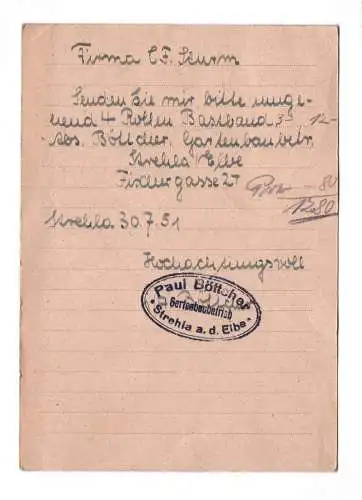 Firma C F. Sturm
Senden Sie mir bitte umge-
hend 4 Rollen Bastband 3- 12-
Abs. Böttcher, Gartenbaubetr.
Strehla Elbe
Fischergasse 27
Porto -80
12.80
Strehla 30.7.51
Hochachtungsvoll
Paul Böttcher
Gartenbaubetrieb
* Strehla a. d. Elbe *